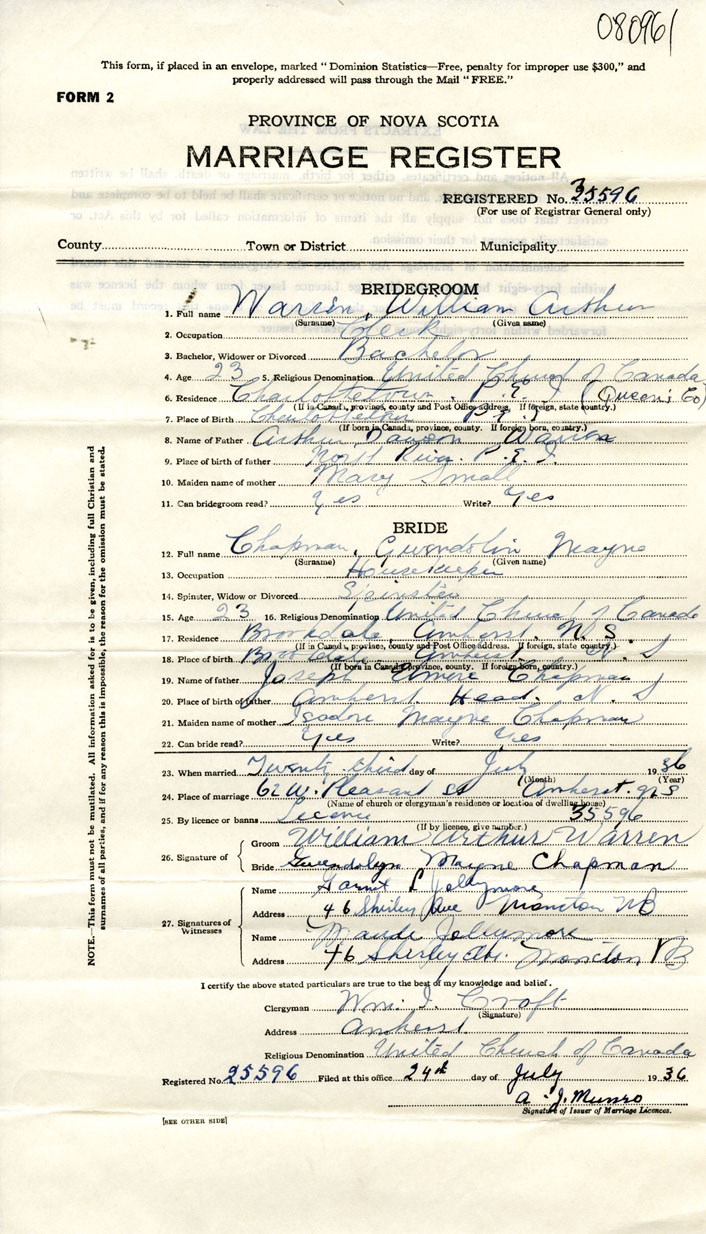 080961
This form, if placed in an envelope, marked "Dominion Statistics—Free, penalty for improper use $300," and
properly addressed will pass through the Mail "FREE."
FORM 2
PROVINCE OF NOVA SCOTIA
MARRIAGE REGISTER
REGISTERED No. 35596
(For use of Registrar General only)
County Town or District Municipality
BRIDEGROOM
1. Full name Warren, William Arthur
(Surname) (Given name)
2. Occupation Clerk
3. Bachelor, Widower or Divorced Bachelor
4. Age 23 5. Religious Denomination United Church of Canada
6. Residence Charlottetown, P.E.I (Queen's Co)
(If in Canada, province, county and Post Office address. If foreign, state country.)
7. Place of Birth Charlottetown P.E.I
(If born in Canada, province, county. If foreign born, country.)
8. Name of Father Arthur Dawson Warren
9. Place of birth of father North River P.E.I.
10. Maiden name of mother Mary Small
11. Can bridegroom read? Yes Write? Yes
BRIDE
12. Full name Chapman, Gwendolin Mayne
(Surname) (Given name)
13. Occupation Housekeeper
14. Spinster, Widow or Divorced Spinster
15. Age 23 16. Religious Denomination United Church of Canada
17. Residence Brookdale, Amherst, N.S.
(If in Canada, province, county and Post Office address. If foreign, state country.)
18. Place of birth Brookdale Amherst N.S
(If born in Canada, province, county. If foreign born, country.)
19. Name of father Joseph Chapman
20. Place of birth of father Amherst Head. N.S
21. Maiden name of mother Isadore Mayne Chapman
22. Can bride read? Yes Write? Yes
23. When married Twenty third day of July 1936
(Month) (Year)
24. Place of marriage 62 W. Pleasant St Amherst. N S
(Name of church or clergyman's residence or location of dwelling house)
25. By licence or banns Licence 35596
(If by licence, give number.)
26. Signature of Groom William Arthur Warren
Bride Gwendolyn Mayne Chapman
27. Signatures of Witnesses Name L Jollymore
Address 46 Shirley Ave Moncton NB
Name Maude Jollymore
Address 46 Shirley Ave. Moncton NB
I certify the above stated particulars are true to the best of my knowledge and belief.
Clergyman Wm. I. Croft
(Signature)
Address Amherst.
Religious Denomination United Church of Canada
Registered No. 25596 Filed at this office 24th day of July 1936
A. J. Munro
Signature of Issuer of Marriage Licences.
[SEE OTHER SIDE]
NOTE.—This form must not be mutilated. All information asked for is to be given, including full Christian and
surnames of all parties, and if for any reason this is impossible, the reason for the omission must be stated.